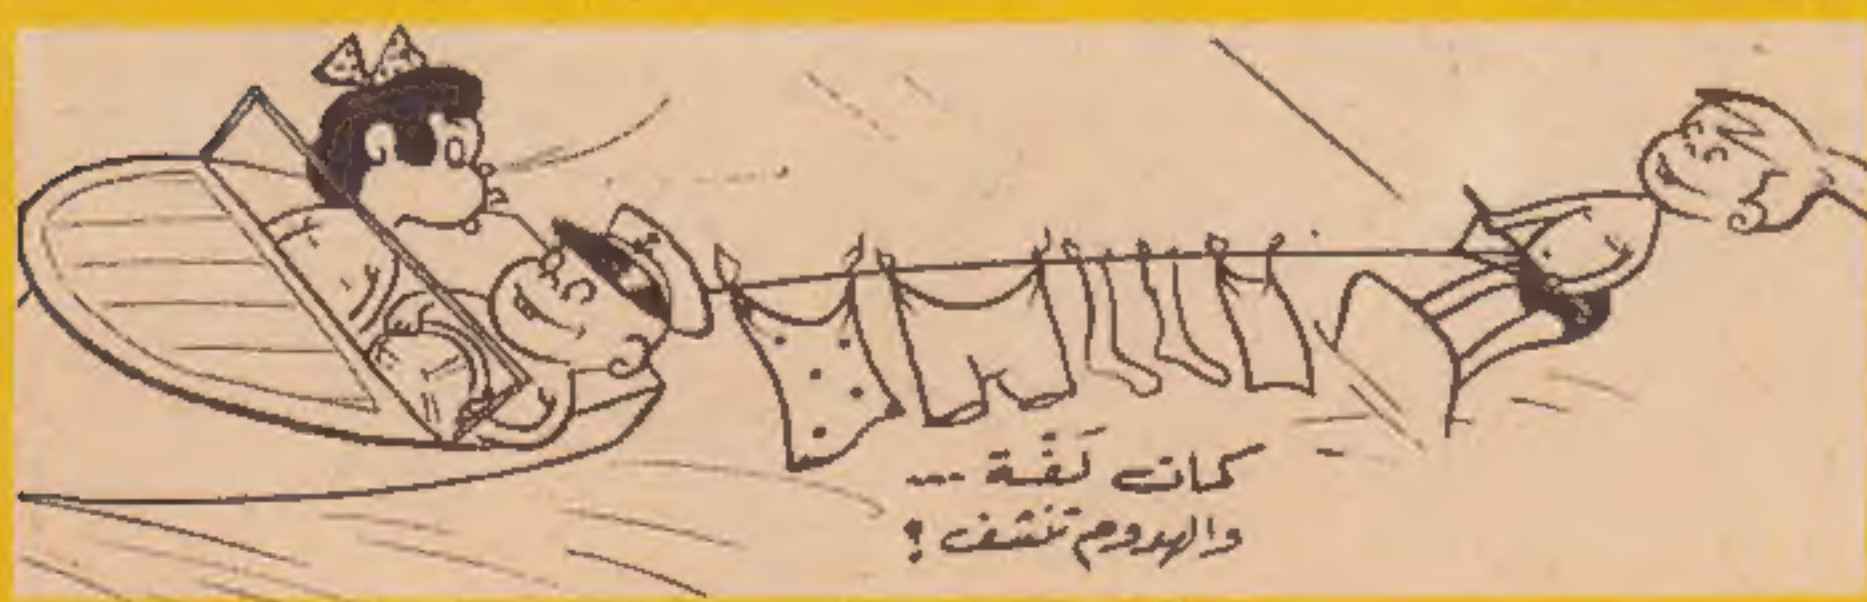 كمان لَفّة ...
والهدوم تنشف !